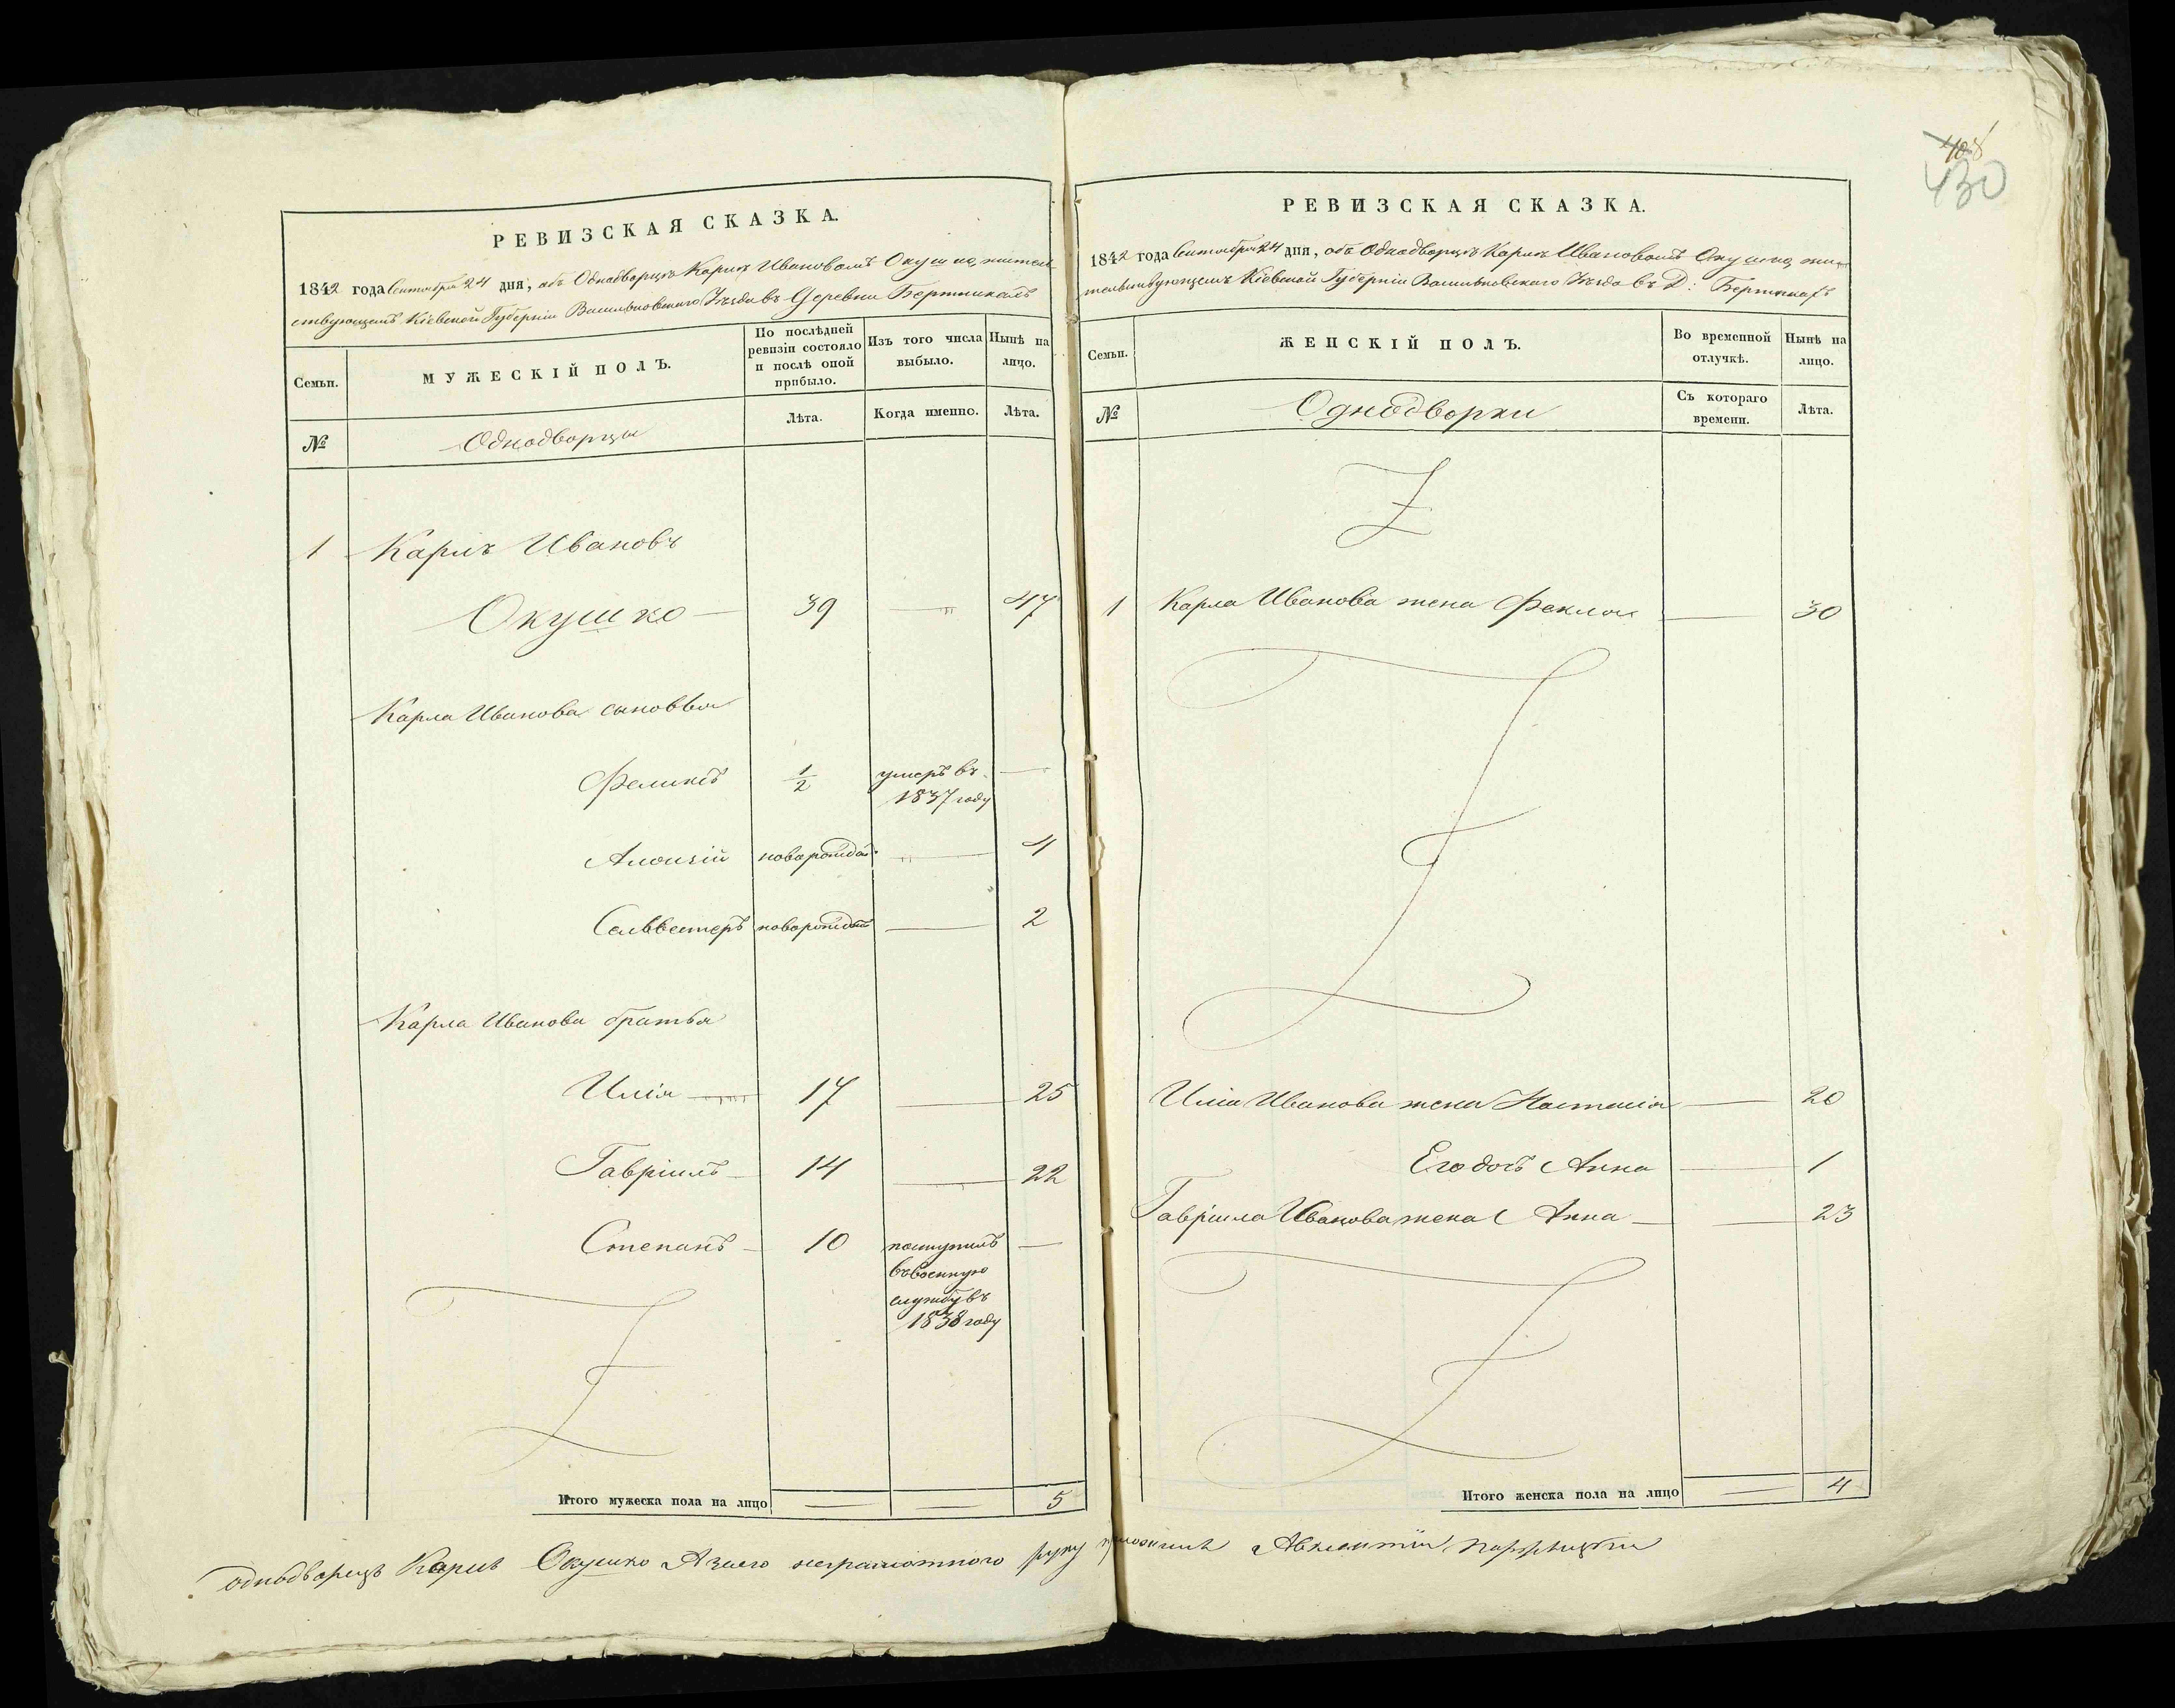 408
430
РЕВИЗСКАЯ СКАЗКА.
1842 года Сентября 24 дня, объ Однодворцѣ Карлѣ Ивановомъ Окушко, житель
ствующемъ Кіевской Губерніи Васильковского Уѣзда въ Деревни Бертникахъ
Семьи.
МУЖЕСКІЙ ПОЛЪ.
По послѣдней ревизіи состояло и послѣ оной прибыло.
Изъ того числа выбыло.
Нынѣ на лицо.
№
Однодворцы
Лѣта.
Когда именно.
Лѣта.
1 Карлъ Ивановъ
Окушко 39 — 47
Карла Иванова сыновья
Феликсъ 1/2 умеръ въ —
1837 году
Алоизій новорожден: — 4
Сельвестеръ новорожден — 2
Карла Иванова братья
Илія 17 — 25
Гавріилъ 14 — 22
Степанъ 10 поступилъ —
въ военную
службу въ
1838 году
Итого мужеска пола на лицо 5
РЕВИЗСКАЯ СКАЗКА.
1842 года Сентября 24 дня, объ Однодворцѣ Карлѣ Ивановомъ Окушко, жи
тельствующемъ Кіевской Губерніи Васильковскаго Уѣзда въ Д: Бертникахъ
Семьи.
ЖЕНСКІЙ ПОЛЪ.
Во временной отлучкѣ.
Нынѣ на лицо.
№
Однодворки
Съ котораго времени.
Лѣта.
1 Карла Иванова жена Фекла — 30
Иліи Иванова жена Настасія — 20
Его дочь Анна — 1
Гавріила Иванова жена Анна — 23
Итого женска пола на лицо 4
однодворецъ Карлъ Окушко А за его неграмотного руку приложилъ